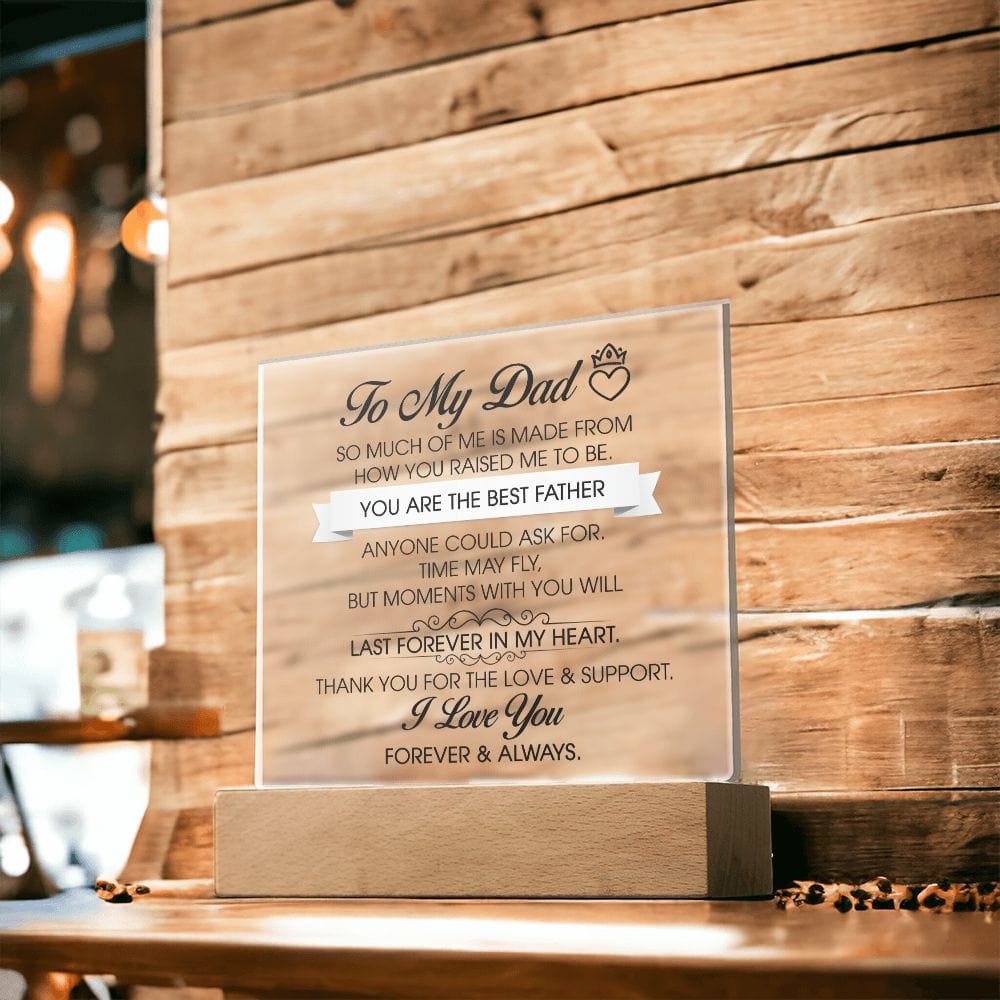 To My Dad
SO MUCH OF ME IS MADE FROM
HOW YOU RAISED ME TO BE.
YOU ARE THE BEST FATHER
ANYONE COULD ASK FOR.
TIME MAY FLY,
BUT MOMENTS WITH YOU WILL
LAST FOREVER IN MY HEART.
THANK YOU FOR THE LOVE & SUPPORT.
I Love You
FOREVER & ALWAYS.